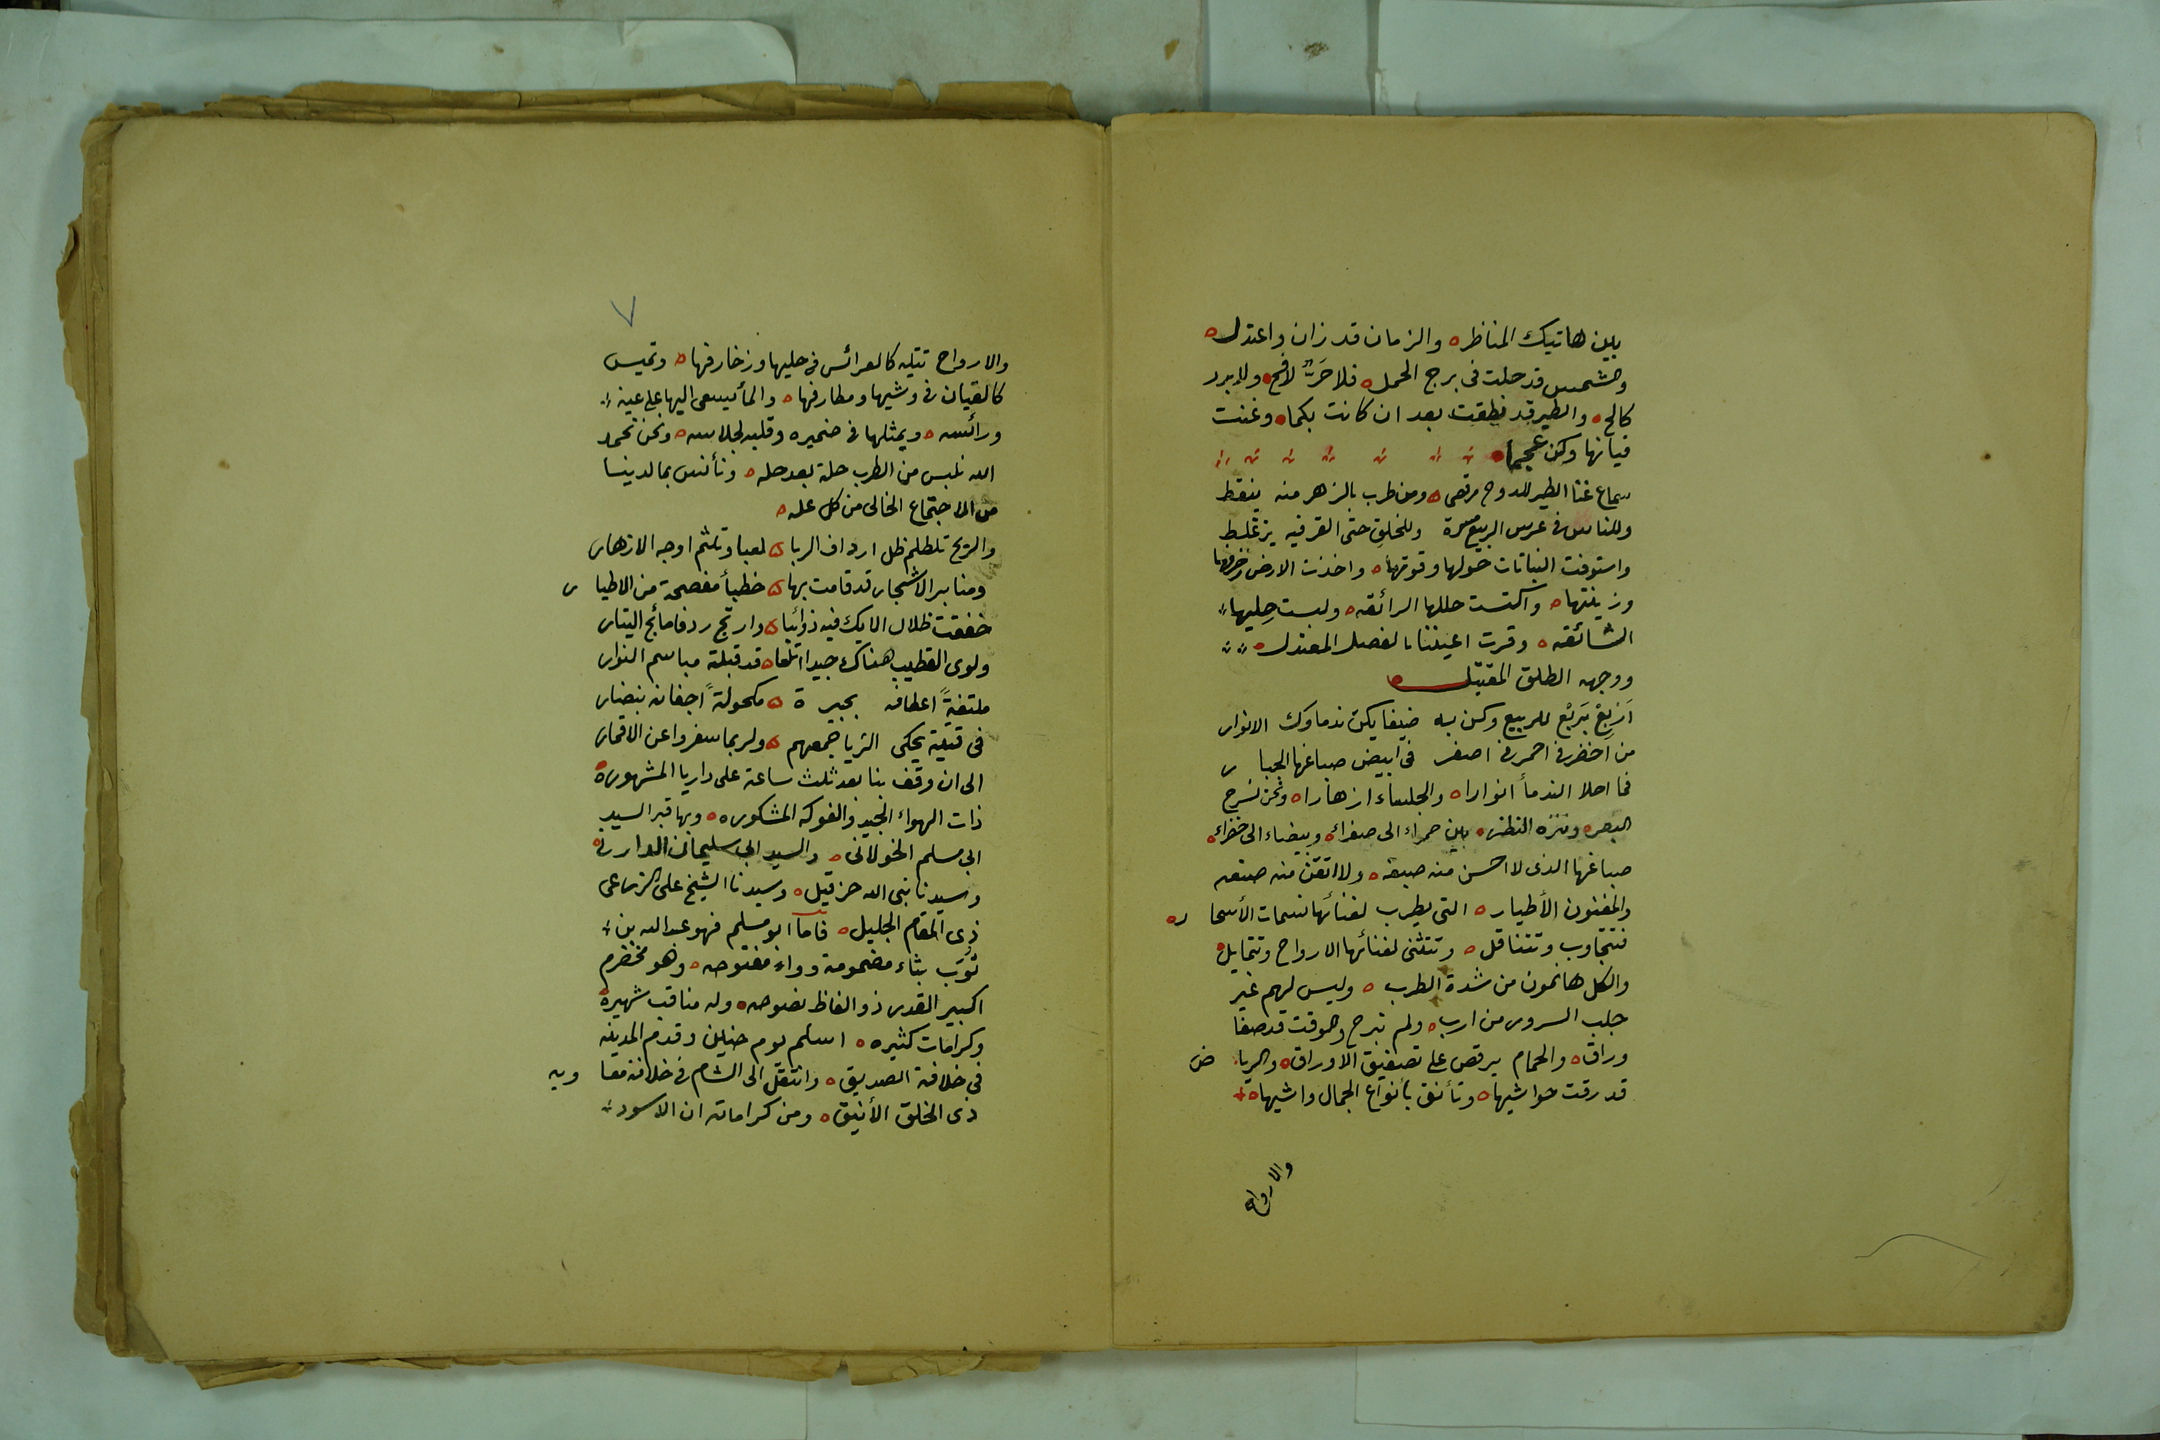 بين هاتيك المناظره والزمان قد زان واعتدل
والشمس قد حلت في برج الحمل فلا حَرٌّ لافح ولا برد
كالح والطير قد نطقت بعد ان كانت بكما وغنت
قيانها وكن عجما
سماع غنا الطير للدوح مرقص ومن طرب بالزهر منه ينقط
وللناس في عرس الربيع مسرة وللخلق حتى القر فيه يزغلط
واستوفت النباتات حولها وقوتها واخذت الارض زخرفها
وزينتها واكتست حللها الرائقه ولبست حليها
الشائقه وقرت اعيننا بالفصل المعتدل
ووجهه الطلق المقبّل
اَرْبِعْ بَرَبْع للربيع وكن به ضيفا يكن ندماوك الانوار
من اخضر في احمر في اصفر في ابيض صباغها الجبار
فما احلا الندمأ انوارا والجلساء ازهارا ونحن نسرح
البصر وننزه النظر بين حمراء الى صفراء وبيضاء الى خضراء
صباغها الذي لا احسن منه صبغه ولا اتقن منه صنعه
والمغنون الأطيار التي يطرب لغنائها نسمات الأسحار
فتتجاوب وتتناقل وتتثنى لغنائها الارواح وتتمايل
والكل هائمون من شدة الطرب وليس لهم غير
جلب السرور من ارب ولم نبرح والوقت قد صفا
وراق والحمام يرقص على تصفيق الاوراق والرياض
قد رقت حواشيها وتأنق بأنواع الجمال واشيها
والارواح
٧
والارواح تتيه كالعرائس في حليها وزخارفها وتميس
كالقيان في وشيها ومطارفها والمأ يسعى اليها على عينه
ورائسه ويمثلها في ضميره وقلبه لجلاسه ونحن نحمد
الله نلبس من الطرب حلة بعد حله ونأنس بما لدينا
من الاجتماع الخالى من كل عله
والريح تلطم ظل ارداف الربا لعبا وتلثم اوجه الازهار
ومنابر الاشجار قد قامت بها خطبأ مفصحة من الاطيار
خفقت ظلال الايك فيه ذوائبا وارتج ردفا مائج التيار
ولوى القضيب هناك جيدا اتلعا قد قبلته مباسم النوار
ملتفةً اعطافه بحبيرة مكحولةً اجفانه بنضار
في فتية يحكى الثريا جمعهم ولربما سفروا عن الاقمار
الى ان وقف بنا بعد ثلث ساعة على داريا المشهوره
ذات الهواء الجيد والفوكه المشكوره وبها قبر السيد
ابي مسلم الخولانى والسيد ابي سليمان الدارني
وسيدنا نبي الله حزقيل وسيدنا الشيخ على الزراعى
ذي المقام الجليل فاما ابو مسلم فهو عبد الله بن
ثُوَب بثاء مضمومة وواء مفتوحه وهو مخضرم
اكبير القدر ذو الفاظ نصوحه وله مناقب شهيرة
وكرامات كثيره اسلم يوم حنين وقدم المدينه
في خلافة الصديق وانتقل الى الشام في خلافة معاويه
ذي الخلق الأنيق ومن كراماته ان الاسود